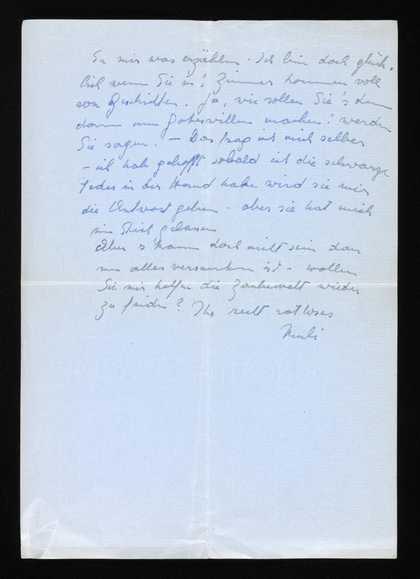 Sie mir was erzählen. Ich bin doch glück-
lich wenn Sie in's Zimmer kommen voll
von Geschichten. Ja, wie wollen Sie's denn
dann um Gotteswillen machen? werden
Sie sagen. – Das frag ich mich selber
– ich hab gehofft sobald ich die schwarze
Feder in der Hand habe wird sie mir
die Antwort geben – aber sie hat mich
im Stich gelassen
Aber 's kann doch nicht sein dass
nun alles versunken ist – wollen
Sie mir helfen die Zauberwelt wieder
zu finden? Ihr recht ratloses